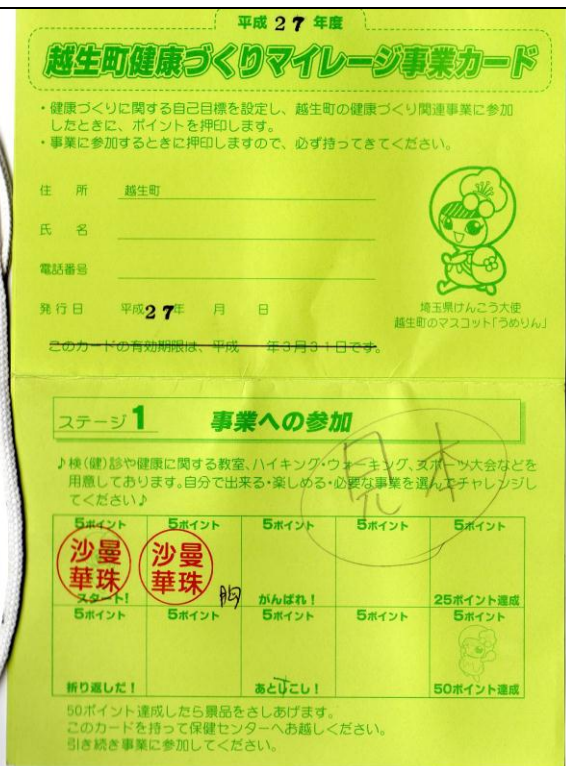 平成 27 年度
越生町健康づくりマイレージ事業カード
・健康づくりに関する自己目標を設定し、越生町の健康づくり関連事業に参加
したときに、ポイントを押印します。
・事業に参加するときに押印しますので、必ず持ってきてください。
住 所 越生町
氏 名
電話番号
発行日 平成27年 月 日
埼玉県けんこう大使
越生町のマスコット「うめりん」
このカードの有効期限は、平成 年3月31日です。
ステージ1 事業への参加
見本
♪検(健)診や健康に関する教室、ハイキング・ウォーキング、スポーツ大会などを
用意しております。自分で出来る・楽しめる・必要な事業を選んでチャレンジし
てください♪
5ポイント 5ポイント 5ポイント 5ポイント 5ポイント
沙曼 沙曼
華珠 華珠
胸
スタート! がんばれ! 25ポイント達成
5ポイント 5ポイント 5ポイント 5ポイント 5ポイント
折り返しだ! あとひとこし! 50ポイント達成
50ポイント達成したら景品をさしあげます。
このカードを持って保健センターへお越しください。
引き続き事業に参加してください。